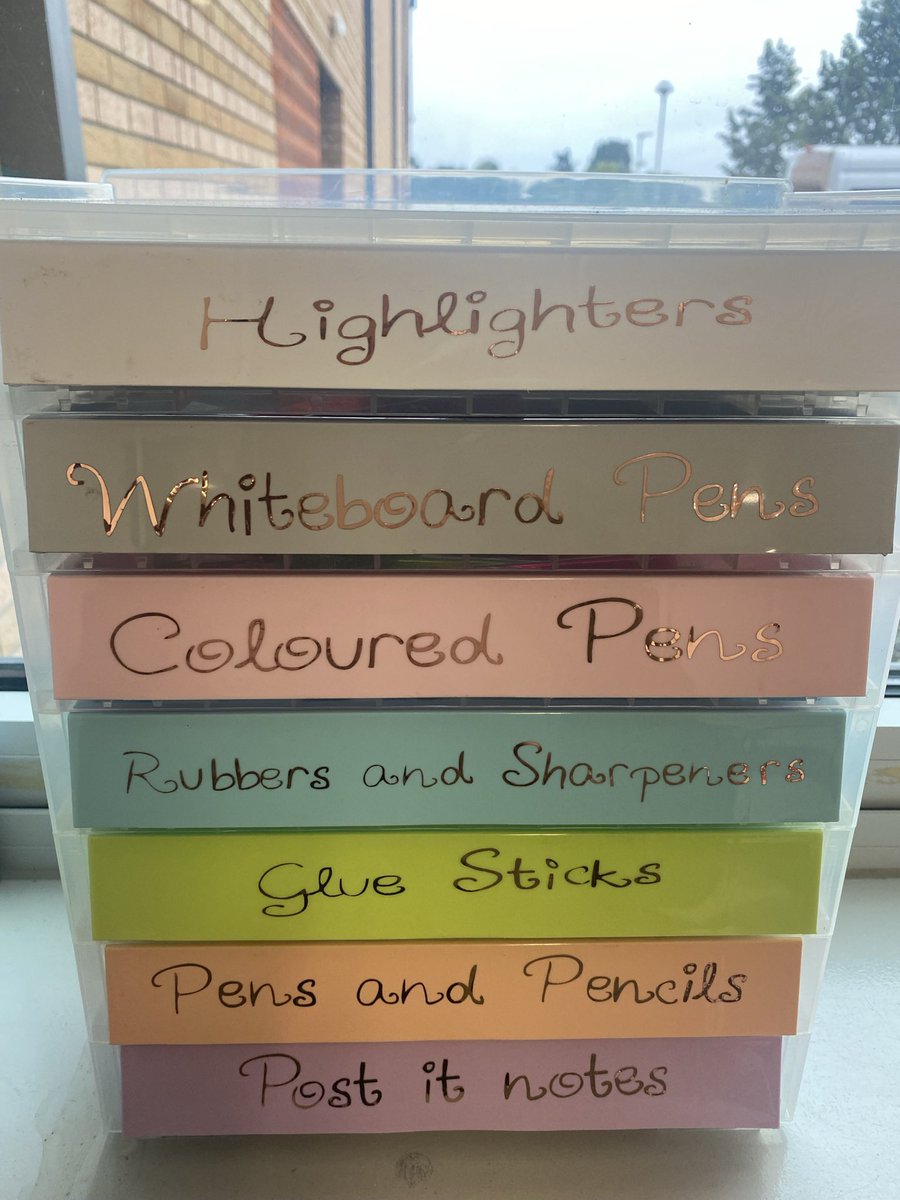 Highlighters
Whiteboard Pens
Coloured Pens
Rubbers and Sharpeners
Glue Sticks
Pens and Pencils
Post it notes